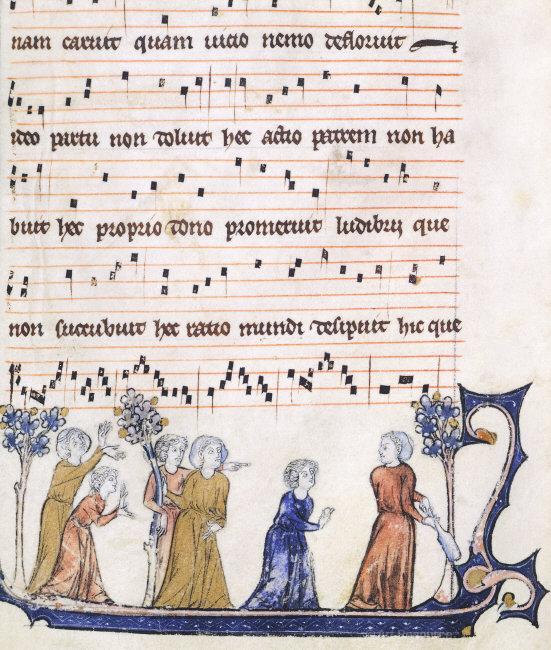 nam caruit quam uicio nemo defloruit
ideo partu non doluit hec actio patrem non ha
buit hec proprio dono promeruit ludibrij que
non succubuit hec ratio mundi desipuit hic que